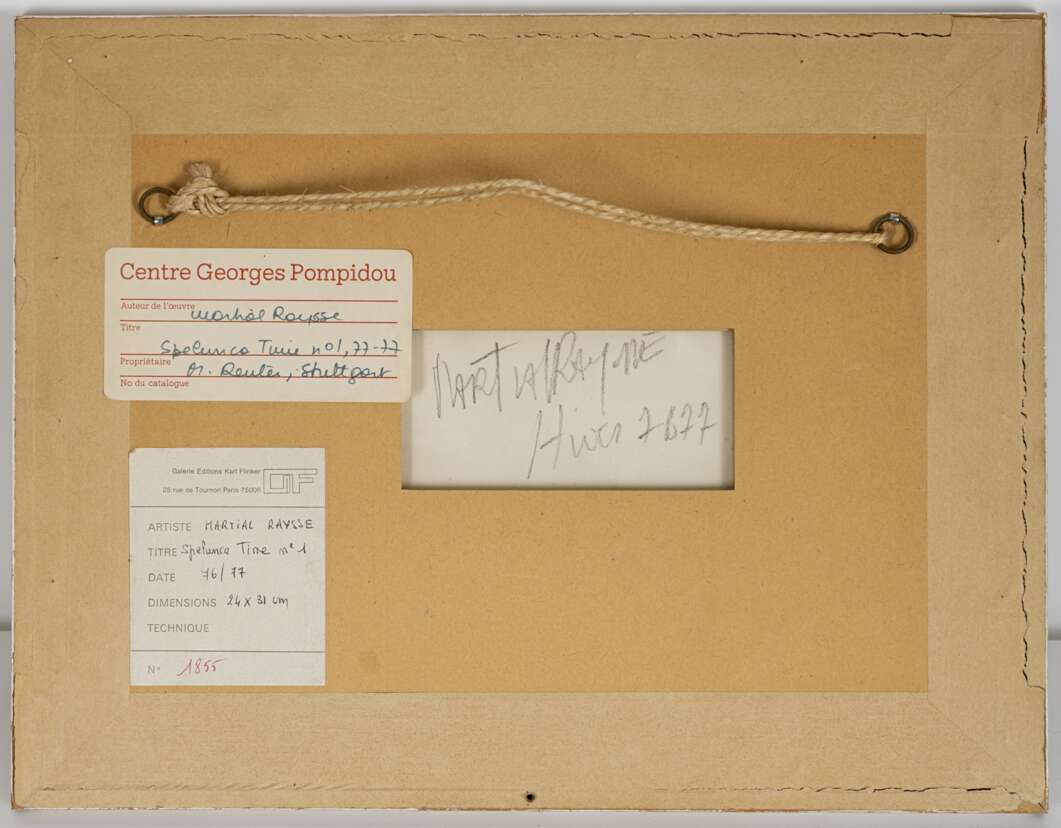 Centre Georges Pompidou
Auteur de l'œuvre Martial Raysse
Titre
Spelunca Time n°1, 77-77
Propriétaire M. Reuter, Stuttgart
No du catalogue
MARTIAL RAYSSE
Hiver 7677
Galerie Editions Karl Flinker
25 rue de Tournon Paris 75006
ARTISTE MARTIAL RAYSSE
TITRE Spelunca Time n° 1
DATE 76/77
DIMENSIONS 24 x 31 cm
TECHNIQUE
N° 1855